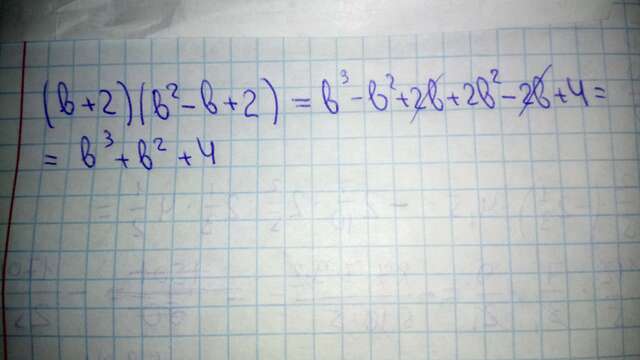 (b+2)(b²-b+2) = b³-b²+2b+2b²-2b+4=
= b³+b²+4